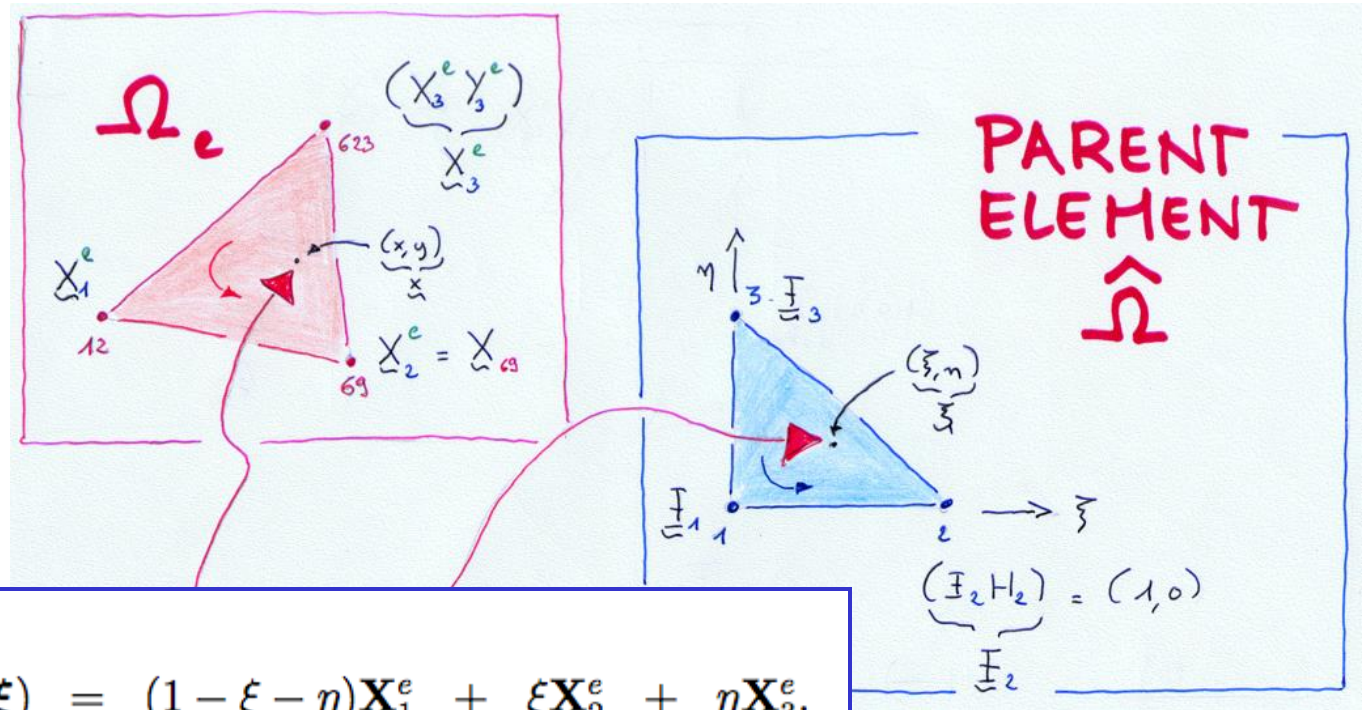 Ω e
(X₃ᵉ Y₃ᵉ)
X₃ᵉ
623
(x,y)
x
X₁ᵉ
12
X₂ᵉ = X₆₉
69
PARENT
ELEMENT
Ω̂
η
3 Ξ₃
(ξ,η)
ξ
Ξ₁ 1
2
ξ
(Ξ₂ H₂) = (1,0)
Ξ₂
ξ) = (1 − ξ − η)X₁ᵉ + ξX₂ᵉ + ηX₃ᵉ,